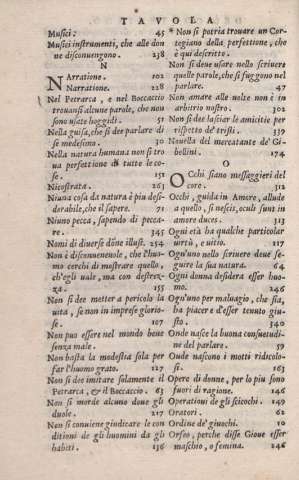 TAVOLA
Musici. 45
Musici instrumenti, che alle don
ne disconuengono. 238
N
NArratione. 102
Narratione. 228
Nel Petrarca, e nel Boccaccio
trouansi alcune parole, che non
sono usate hoggidi. 51
Nella guisa, che si dee parlare di
se medesimo. 30
Nella natura humana non si tro
ua perfettione di tutte le co-
se. 151
Nicostrata. 263
Niuna cosa da natura è piu desi-
derabile, che il sapere. 91
Niuno pecca, sapendo di pecca-
re. 345
Nomi di diuerse donne illust. 254
Non è disconueneuole, che l'huo-
mo cerchi di mostrare quello,
ch'egli uale, ma con destrez-
za. 155
Non si dee metter a pericolo la
uita, se non in imprese glorio-
se. 107
Non puo essere nel mondo bene
senza male.
Non basta la modestia sola per
far l'huomo grato. 127
Non si dee imitare solamente il
Petrarca, & il Boccaccio. 63
Non si morde alcuno doue gli
duole. 217
Non si conuiene giudicare le con
ditioni de gli huomini da gli
habiti. 136
Non si potria trouare un Cor-
tegiano della perfettione, che
è qui descritto.
Non si deue usare nello scriuere
quelle parole, che si fuggono nel
parlare. 47
Non amare alle uolte non è in
arbitrio nostro. 302
Non si dee lasciar le amicitie per
rispetto de' tristi. 339
Nouella del mercatante de' Gi-
bellini. 174
O
OCchi siano messaggieri del
core. 312
Occhi, guida in Amore, allude
a quello, si nescis, oculi sunt in
amore duces. 313
Ogni età ha qualche particolar
uirtù, e uitio. 117
Ogn'uno nello scriuere deue se-
guire la sua natura. 64
Ogni donna desidera esser huo-
mo. 246
Ogn'uno per maluagio, che sia,
ha piacere d'esser tenuto giu-
sto. 340
Onde nasce la buona consuetudi-
ne del parlare. 59
Onde nascono i motti ridicolo-
si. 163
Opere di donne, per lo piu sono
fuori di ragione. 246
Operationi de gli sciocchi. 149
Oratori. 62
Ordine de' giuochi. 10
Orfeo, perche disse Gioue esser
maschio, o femina. 246